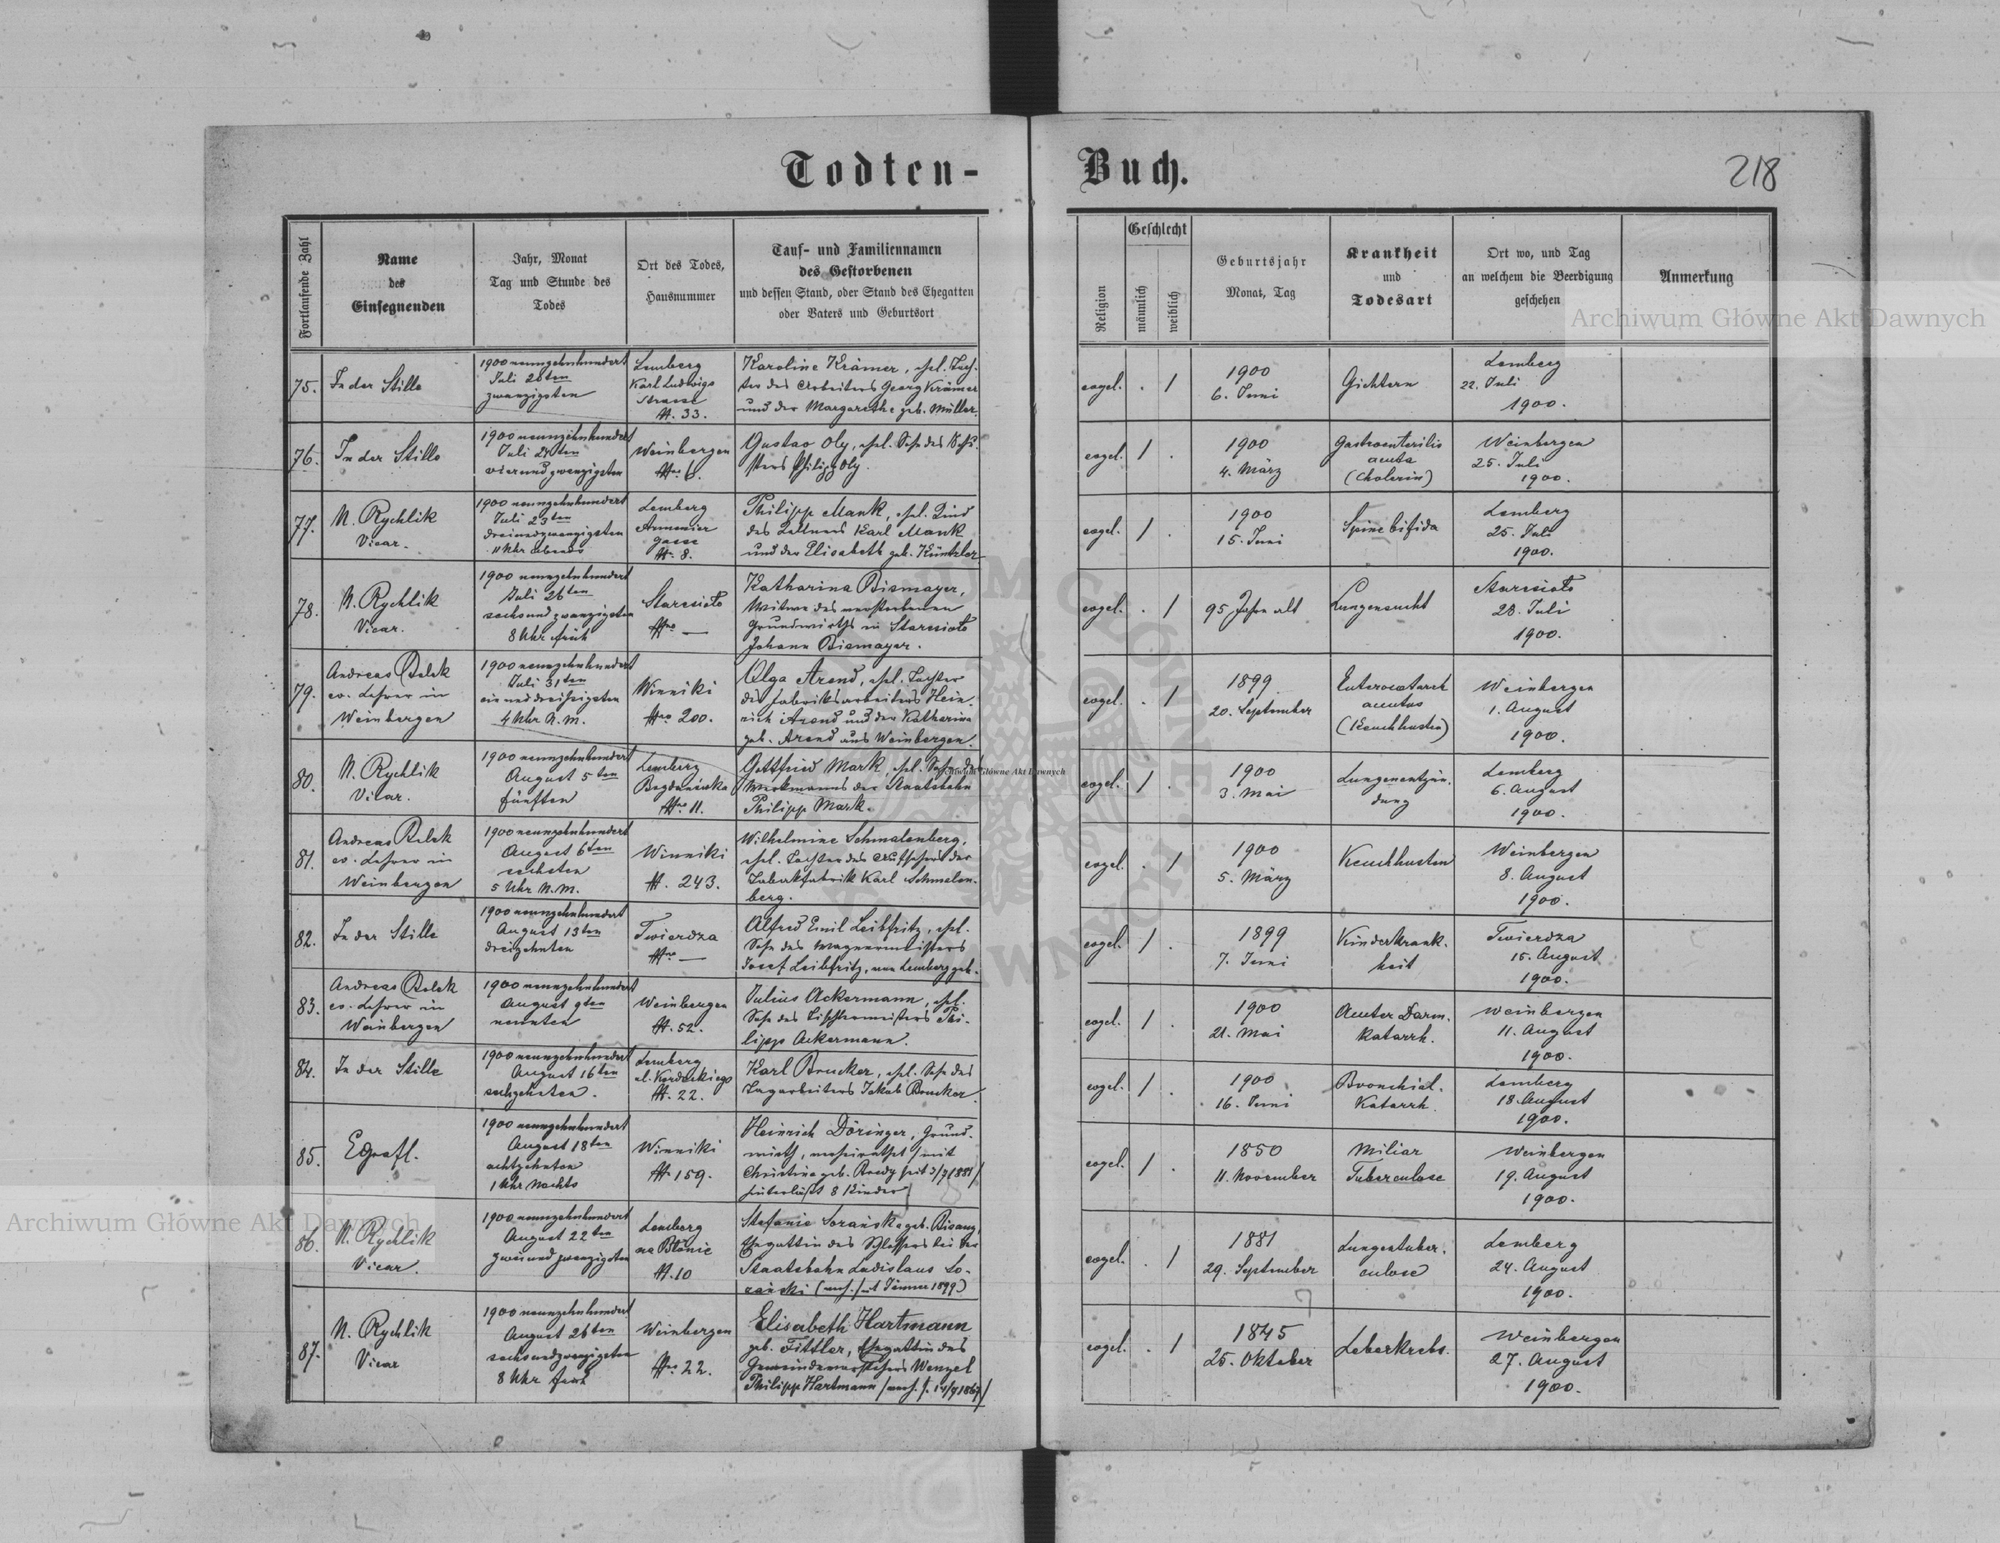 Todten-Buch.
218
Fortlaufende Zahl
Name
des
Einsegnenden
Jahr, Monat
Tag und Stunde des
Todes
Ort des Todes,
Hausnummer
Tauf- und Familiennamen
des Gestorbenen
und dessen Stand, oder Stand des Ehegatten
oder Vaters und Geburtsort
Religion
Geschlecht
männlich
weiblich
Geburtsjahr
Monat, Tag
Krankheit
und
Todesart
Ort wo, und Tag
an welchem die Beerdigung
geschehen
Anmerkung
75.
In der Stille
1900 neunzehnhundert
Juli 20ten
zwanzigsten
Lemberg
Karl Ludwigs
Strasse
N. 33.
Karoline Krämer, ehel. Toch-
ter des Arbeiters Georg Krämer
und der Margarethe geb. Müller.
evgel.
. 1
1900
6. Juni
Gichtern
Lemberg
22. Juli
1900.
76.
In der Stille
1900 neunzehnhundert
Juli 24ten
vierundzwanzigsten
Weinbergen
Nro 6.
Gustav Oly, ehel. Sohn des Schu-
sters Philipp Oly.
evgel.
1 .
1900
4. März
Gastroenterilis
acuta
(Cholerin)
Weinbergen
25. Juli
1900.
77.
N. Rychlik
Vicar.
1900 neunzehnhundert
Juli 23ten
dreiundzwanzigsten
11 Uhr abends
Lemberg
Armenier
gasse
N. 8.
Philipp Mank, ehel. Kind
des Kellners Karl Mank
und der Elisabeth geb. Küntzler
evgel.
1 .
1900
15. Juni
Spina bifida
Lemberg
25. Juli
1900.
78.
N. Rychlik
Vicar.
1900 neunzehnhundert
Juli 26ten
sechsundzwanzigsten
8 Uhr früh
Staresioło
Nro —
Katharina Bismayer,
Witwe des verstorbenen
Grundwirths in Staresioło
Johann Bismayer.
evgel.
. 1
95 Jahre alt
Lungensucht
Staresioło
28. Juli
1900.
79.
Andreas Bolek
ev. Lehrer in
Weinbergen
1900 neunzehnhundert
Juli 31ten
einunddreißigsten
4 Uhr N.M.
Winniki
Nro 200.
Olga Arend, ehel. Tochter
des Fabriksarbeiters Hein-
rich Arend und der Katharina
geb. Arend aus Weinbergen.
evgel.
. 1
1899
20. September
Enterocatarrh
acutus
(Keuchhusten)
Weinbergen
1. August
1900.
80.
N. Rychlik
Vicar.
1900 neunzehnhundert
August 5ten
fünften
Lemberg
Bogdanówka
Nro 11.
Gottfried Mark, ehel. Sohn des
Werkmanns der Staatsbahn
Philipp Mark.
evgel.
1 .
1900
3. Mai
Lungenentzün-
dung
Lemberg
6. August
1900.
81.
Andreas Bolek
ev. Lehrer in
Weinbergen
1900 neunzehnhundert
August 6ten
sechsten
5 Uhr N.M.
Winniki
N. 243.
Wilhelmine Schmalenberg,
ehel. Tochter des Aufsehers der
Tabakfabrik Karl Schmalen-
berg.
evgel.
. 1
1900
5. März
Keuchhusten
Weinbergen
8. August
1900.
82.
In der Stille
1900 neunzehnhundert
August 13ten
dreizehnten
Twierdza
Nro —
Alfred Emil Leibfritz, ehel.
Sohn des Wagnermeisters
Josef Leibfritz, aus Lemberg geb.
evgel.
1 .
1899
7. Juni
Kinderkrank-
heit
Twierdza
15. August
1900.
83.
Andreas Bolek
ev. Lehrer in
Weinbergen
1900 neunzehnhundert
August 9ten
neunten
Weinbergen
N. 52.
Julius Ackermann, ehel.
Sohn des Tischlermeisters Phi-
lipp Ackermann.
evgel.
1 .
1900
21. Mai
Acuter Darm-
katarrh.
Weinbergen
11. August
1900.
84.
In der Stille
1900 neunzehnhundert
August 16ten
sechzehnten.
Lemberg
ul. Kordeckiego
N. 22.
Karl Brucker, ehel. Sohn des
Tagarbeiters Jakob Brucker
evgel.
1 .
1900
16. Juni
Bronchial-
Katarrh.
Lemberg
18. August
1900.
85.
EGrafl.
1900 neunzehnhundert
August 18ten
achtzehnten
1 Uhr Nachts
Winniki
N. 159.
Heinrich Döringer, Grund-
wirth, verheirathet /mit
Christine geb. Bredy seit 3/7 1881/
hinterläßt 8 Kinder
evgel.
1 .
1850
11. November
Miliar
Tuberculose
Weinbergen
19. August
1900.
86.
N. Rychlik
Vicar.
1900 neunzehnhundert
August 22ten
zweiundzwanzigsten
Lemberg
na Błonie
N. 10
Stefanie Soranska geb. Bisanz,
Ehegattin des Schlossers bei der
Staatsbahn Ladislaus So-
rański (verh. seit Jänner 1899)
evgel.
. 1
1881
29. September
Lungentuber-
culose
Lemberg
24. August
1900.
87.
N. Rychlik
Vicar
1900 neunzehnhundert
August 26ten
sechsundzwanzigsten
8 Uhr früh
Weinbergen
Nro 22.
Elisabeth Hartmann
geb. Tittler, Ehegattin des
Gemeindevorstehers Wenzel
Philipp Hartmann /verh. s. 14/9 1867/
evgel.
. 1
1845
25. Oktober
Leberkrebs.
Weinbergen
27. August
1900.
Archiwum Główne Akt Dawnych
Archiwum Główne Akt Dawnych
Archiwum Główne Akt Dawnych